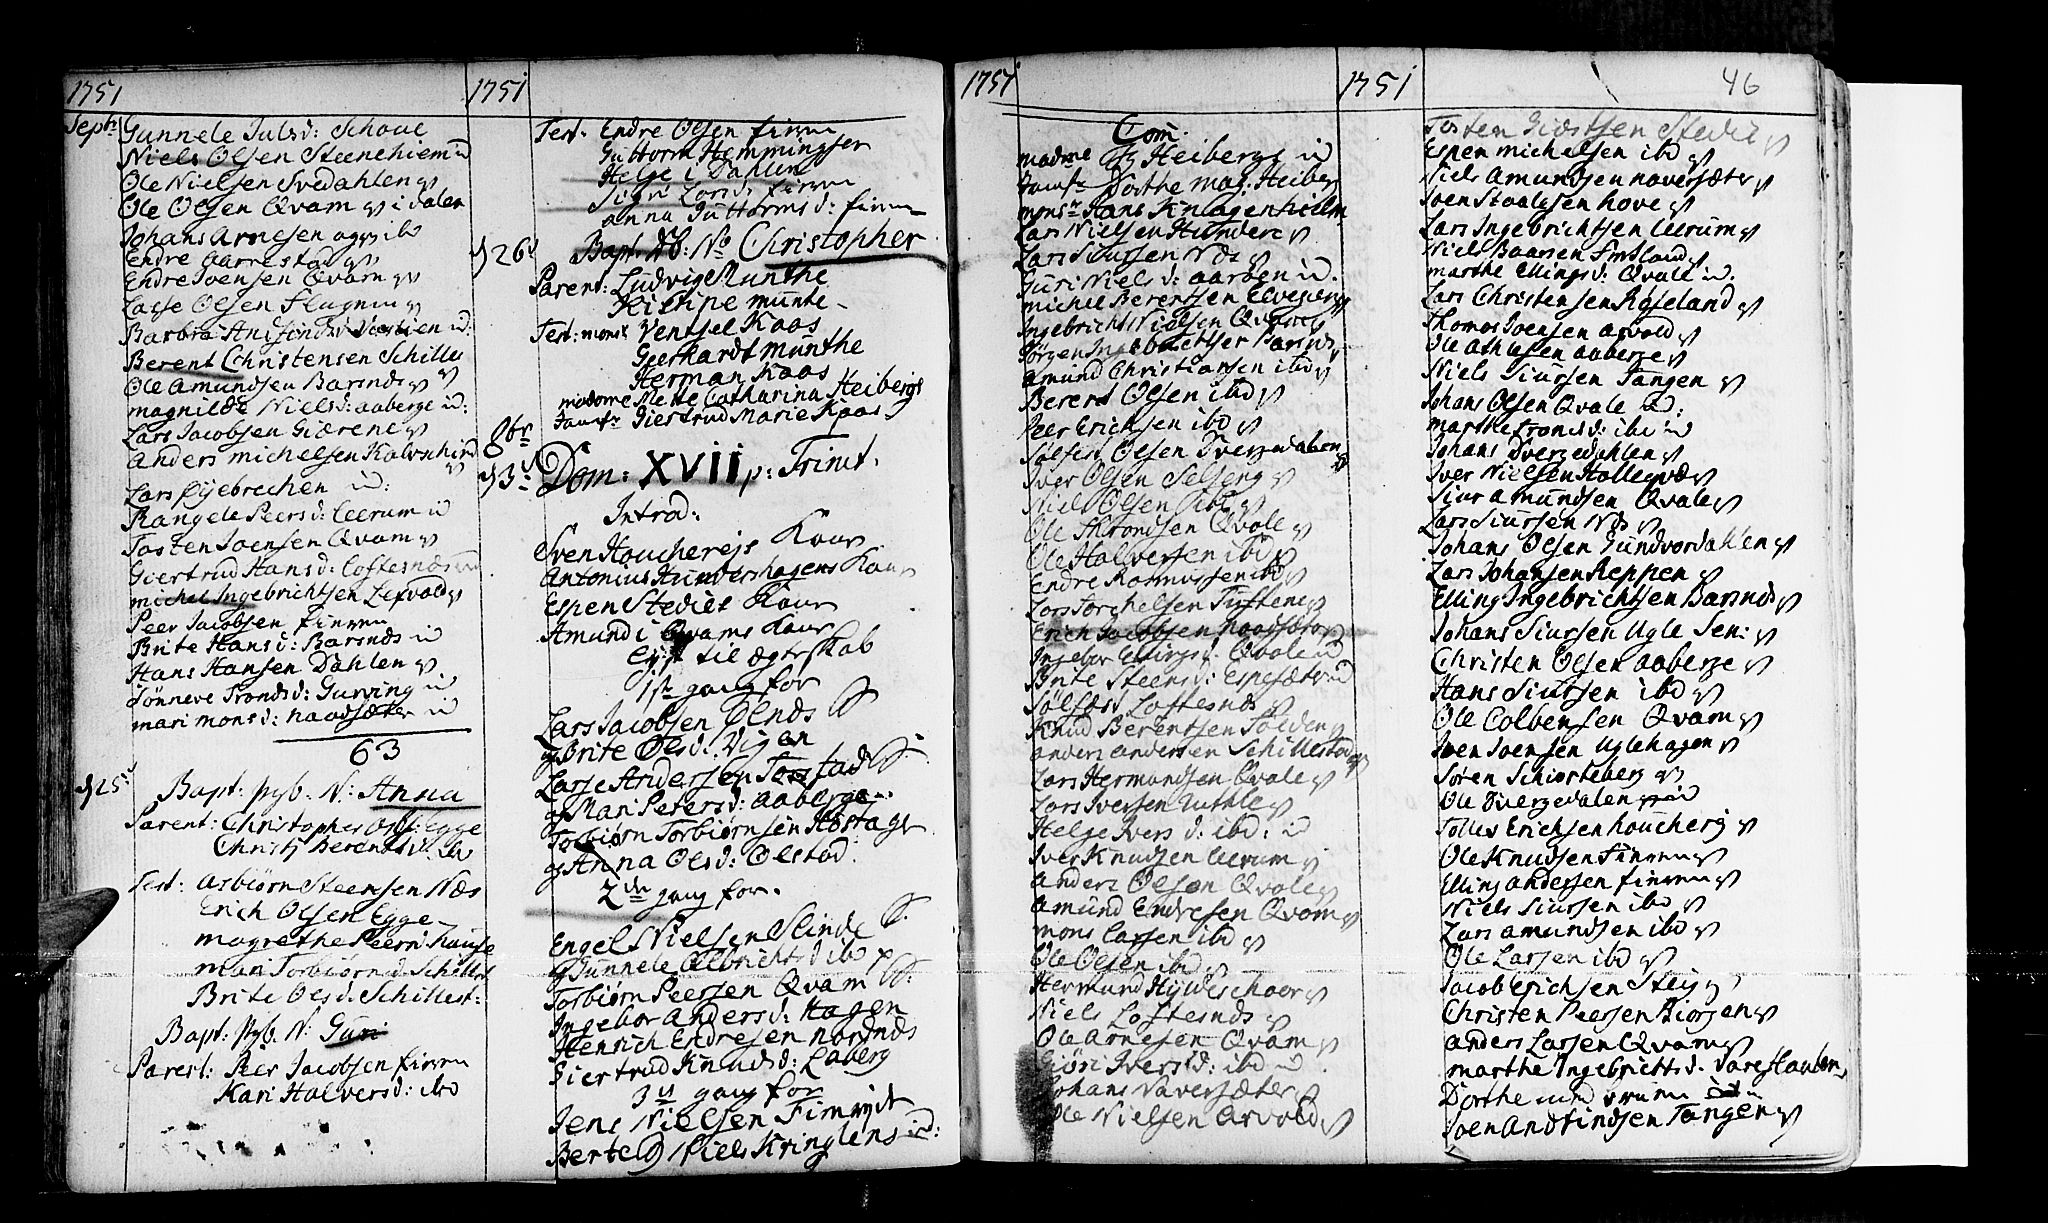 1751
Septr
Gunnele Julsd: Schoue
Niels Olsen Steenehiem ud
Ole Nielsen Svedahlen
Ole Olsen Qvam i dalen
Johans Arnesen ibd
Endre Aarrestad
Endre Joensen Qvam
Lasse Olsen Flugum
Barbra
Berent Christensen Schilles
Ole Amundsen Barsnds
Magnilde Nielsd: aaberge ud:
Lars Jacobsen Giærene
Anders Michelsen
Lars Øyebrechen ud:
Rangele Peersd: Leerum ud
Tosten Joensen Qvam
Giertrud Hansd: Loftesnæs
Michel Ingebrichtsen Lefvold
Peer Jacobsen Fimm
Brite Hansd: Barsnds ud
Hans Hansen Dahlen
Sønneve Trondsd: Gurving ud
Mari Monsd: Naadsæter ud
63
d 25
Bapt: pyb. N: Anna
Parent: Christopher Egge
Christj Berendsd: ibd
Test: Asbiørn Steensen Næs
Erich Olsen Egge
Magrethe Peersd hause
Mari Torbiørnsd Schillest
Brite Olsd: Schillest:
Bapt: pyb. N: Guri
Parent: Peer Jacobsen Fimm
Kari Halversd: ibd
1751
Test: Endre Olsen Fimm
Guttorm Hemmingsen
Helge i Dahlen
Sigri Larsd: Fimm
Anna Guttormsd: Fimm
d 26
Bapt. N: Christopher
Parent: Ludvig Munthe
Kistine Munte
Test: Monsr Ventzel Kaas
Geerhardt Munthe
Herman Kaas
Madame Mette Catharina Heibergs
Jomfr Giertrud Marie Kaas
8br
d 3
Dom: XVII p: Trinit.
Introd:
Sven Houcherejs Kone
Antonius Hundershagens Kone
Espen Stedies Kone
Amund i Qvams Kone
Lyst til ægteskab
1ste gang for
Lars Jacobsen Elnds
og Brite Olsd: Vigen
Lasse Andersen Torstad
og Mari Petersd: Aaberge
Torbiørn Torbiørnsen Aastage
og Anna Olsd: Olstad
2den gang for
Engel Nielsen Slinde
og Gunnele Olbrichtsd ibd
Torbiørn Peersen Qvam
Ingebor Andersd: Hagen
Henrich Endresen Nornæs
Giertrud Knudsd: Laberg
3die gang for
Jens Nielsen Fimreyte
Berte Niels Kringlens ud:
1751
Com:
Madme Heibergs ud
Jomfr Dorthe Mag: Heiberg
Monsr Hans Knagenhielm
Lars Nielsen Hundere
Lars Siursen Næs
Guri Nielsd: Aarøen ud.
Michel Berentsen Elveseng
Ingebricht Nielsen Qvam
Jørgen Ingebrichtsen Barsnds
Amund Christiansen ibd
Berent Olsen ibd
Peer Erichsen ibd
Sølfest Olsen Dvergedalen
Iver Olsen Selseng
Niels Olsen ibd
Ole Trondsen Qvale
Ole Halversen ibd
Endre Rasmussen ibd
Lars Torchelsen Tuftene
Erich Jacobsen Naadsæter
Ingebor Ellingsd: Qvale ud
Brite Steensd: Espesæt ud
Sølfest Loftesnds
Knud Berentsen Foldeng
Anders Andersen Schillestad
Lars Hermundsen Qvale
Lars Iversen Ruthle
Helge Ivers d: ibd: ud
Iver Knudsen Leerum
Anders Olsen Qvale
Amund Endresen Qvam
Mons Larsen ibd
Ole Olsen ibd
Hermund Hyldeschoer
Niels Loftesnds
Ole Arnesen Qvam
Giøri Iversd: ibd ud
Johans Naversæter
Ole Nielsen Arvold
1751
46
Tosten Giæstsen Stedie
Espen Michelsen ibd
Niels Amundsen Naversæter
Joen Staalesen Hove
Lars Ingebrichtsen Leerum
Niels Baarsen Fretland
Marthe Ellingsd: Qvale ud.
Lars Christensen Røseland
Thomas Joensen Arvold
Ole Athlesen Aaberge
Niels Siursen Tangen
Johans Olsen Qvale ud:
Marthe Tronsd: ibd ud
Johans Dvergedahlen
Iver Nielsen Hollevæ
Siur Amundsen Qvale
Lars Siursen Nds
Johans Olsen Gundvordahlen
Lars Johansen Reppen
Elling Ingebrichtsen Barsnds
Johans Siursen Ugle Sen:
Christen Olsen Aaberge
Hans Siursen ibd
Ole Colbensen Qvam
Joen Joensen Uglehagen
Søren Schiorteberg
Ole Dvergedalen
Tolles Erichsen Houcherej
Ole Knudsen Fimm
Elling Andersen Fimm
Niels Siursen ibd
Lars Amundsen ibd
Ole Larsen ibd
Jacob Erichsen Steig
Christen Peersen Biørgen
Anders Larsen Qvam
Marthe Ingebrichtsd. Vareshaulen
Dorthe ud
Joen Andfindsen Tangen